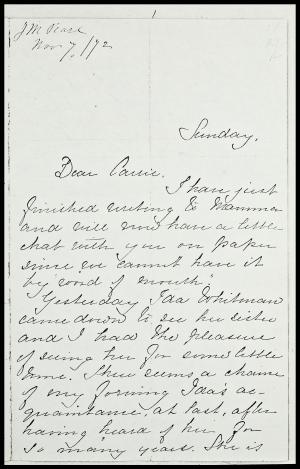 J M Pease
Nov 7, /72
Sunday.
Dear Carrie.
I have just
finished writing to Mamma
and will now have a little
chat with you on paper
since we cannot have it
by "word of mouth"
Yesterday Ida Whitman
came down to see her sister
and I had the pleasure
of seeing her for some little
time. There seems a chance
of my forming Ida's ac-
quaintance, at last, after
having heard of her for
so many years. She is